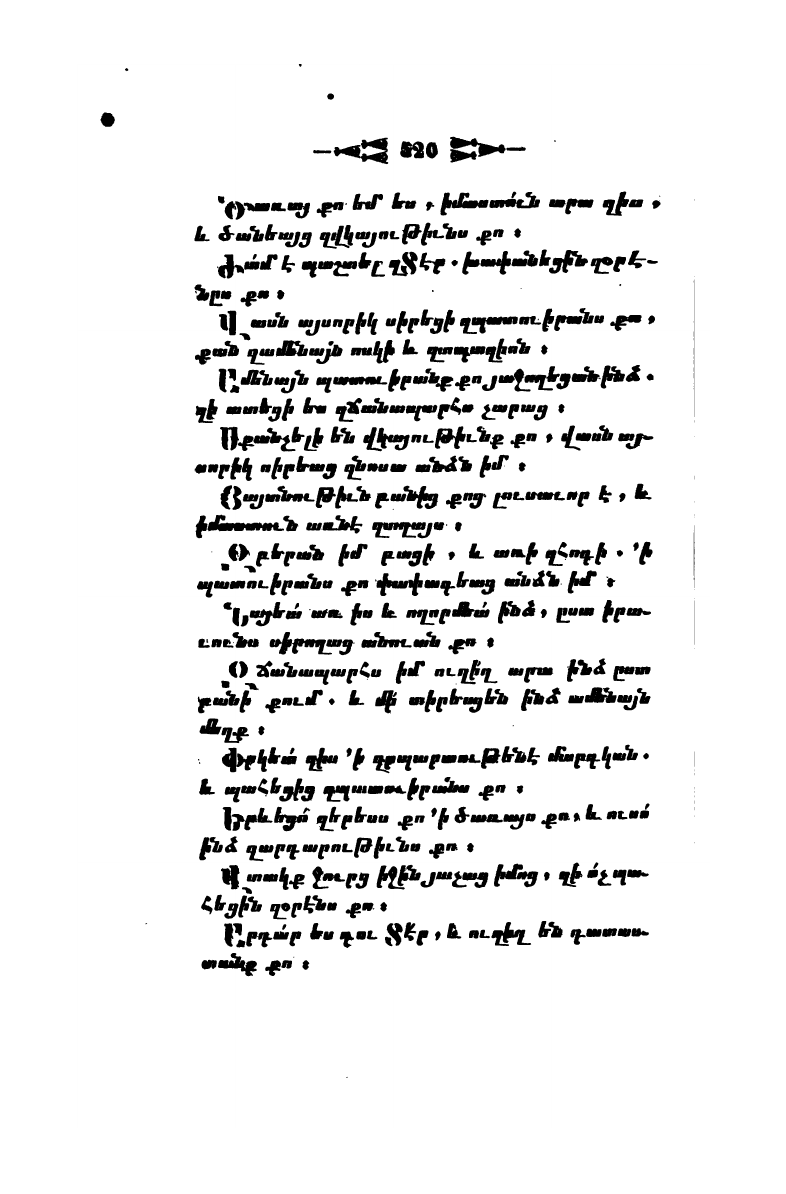 520
Ծառայ քո եմ ես, իմաստո՛ւն արա զիս,
և ծանեայց զվկայութիւնս քո :
Ժա՛մ է պաշտել զՏէր. խափանեցին զօրէ-
նըս քո :
Վասն այսորիկ սիրեցի զպատուիրանս քո,
քան զամենայն ոսկի և զտպազիոն :
Ամենայն պատուիրանք քո յաջողեցան ինձ.
զի ատեցի ես զճանապարհս չարաց :
Սքանչելի են վկայութիւնք քո, վասն այ-
սորիկ սիրեաց զնոսա անձն իմ :
Յայտնութիւն բանից քոց լուսաւոր է, և
իմաստուն առնէ զտղայս :
Զբերան իմ բացի, և առի զհոգի. 'ի
պատուիրանս քո փափագեաց անձն իմ :
Նայեա՛ առ իս և ողորմեա՛ ինձ, ըստ իրա-
ւունս սիրողաց անուան քո :
Զճանապարհս իմ ուղիղ արա ինձ ըստ
բանի քում. և մի՛ տիրեսցեն ինձ ամենայն
մեղք :
Փրկեա՛ զիս 'ի զրպարտութենէ մարդկան.
և պահեցից զպատուիրանս քո :
Երևեցո՛ զերեսս քո 'ի ծառայս քո, և ուսո՛
ինձ զարդարութիւնս քո :
Վտակք ջուրց իջին յաչաց իմոց, զի ո՛չ պա-
հեցին զօրէնս քո :
Արդա՛ր ես դու Տէր, և ուղիղ են դատաս-
տանք քո :